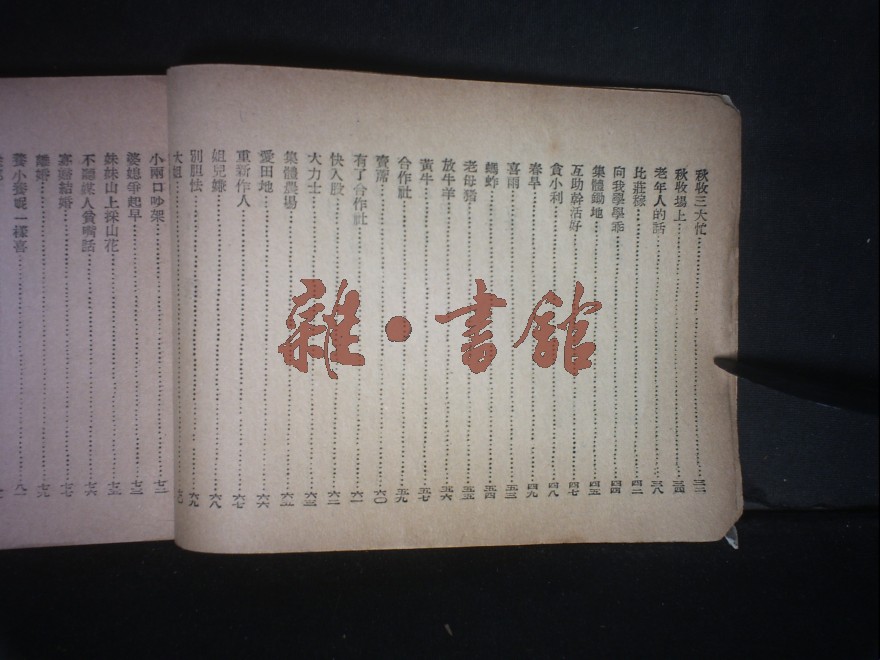 秋收三大忙……三二
秋收場上……三四
老年人的話……三八
比莊稼……四二
向我學學乖……四四
集體鋤地……四五
互助幹活好……四七
貪小利……四八
春旱……四九
喜雨……五三
螞蚱……五四
老母豬……五五
放牛羊……五六
黃牛……五七
合作社……五九
賣席……六〇
有了合作社……六一
快入股……六二
大力士……六三
集體農場
愛田地……六六
重新作人……六七
姐兒嫌……六八
別胆怯……六九
大姐
小兩口吵架……七二
婆媳爭起早……七三
妹妹山上採山花……七五
不聽媒人貧嘴話……七六
寡婦結婚……七七
離婚……七九
養小養妮一樣喜……八一
雜·書館